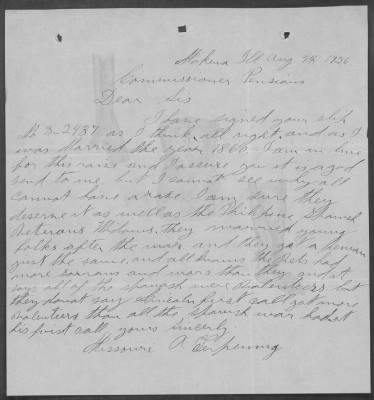 Mokena Ill Aug 24 1926
Commissioner Pensions
Dear Sir
I have signed your slip
No 3-2437 as I think all right, and as I
was Married the year 1860 I am in line
for this raise and I assure you it is a god
send to me, but I cannot see why all
cannot have a raise. I am sure they
deserve it as well as the Spanish
veterans Widows, they married young
folks after the war, and they get a pension
just the same, and all knows the vets had
more sorrows and wars than they, and it
says all of the spanish were volenteers but
they donat say Lincoln first call got more
volenteers than all the Spanish war had at
his first call, yours sincerly
Missouri A